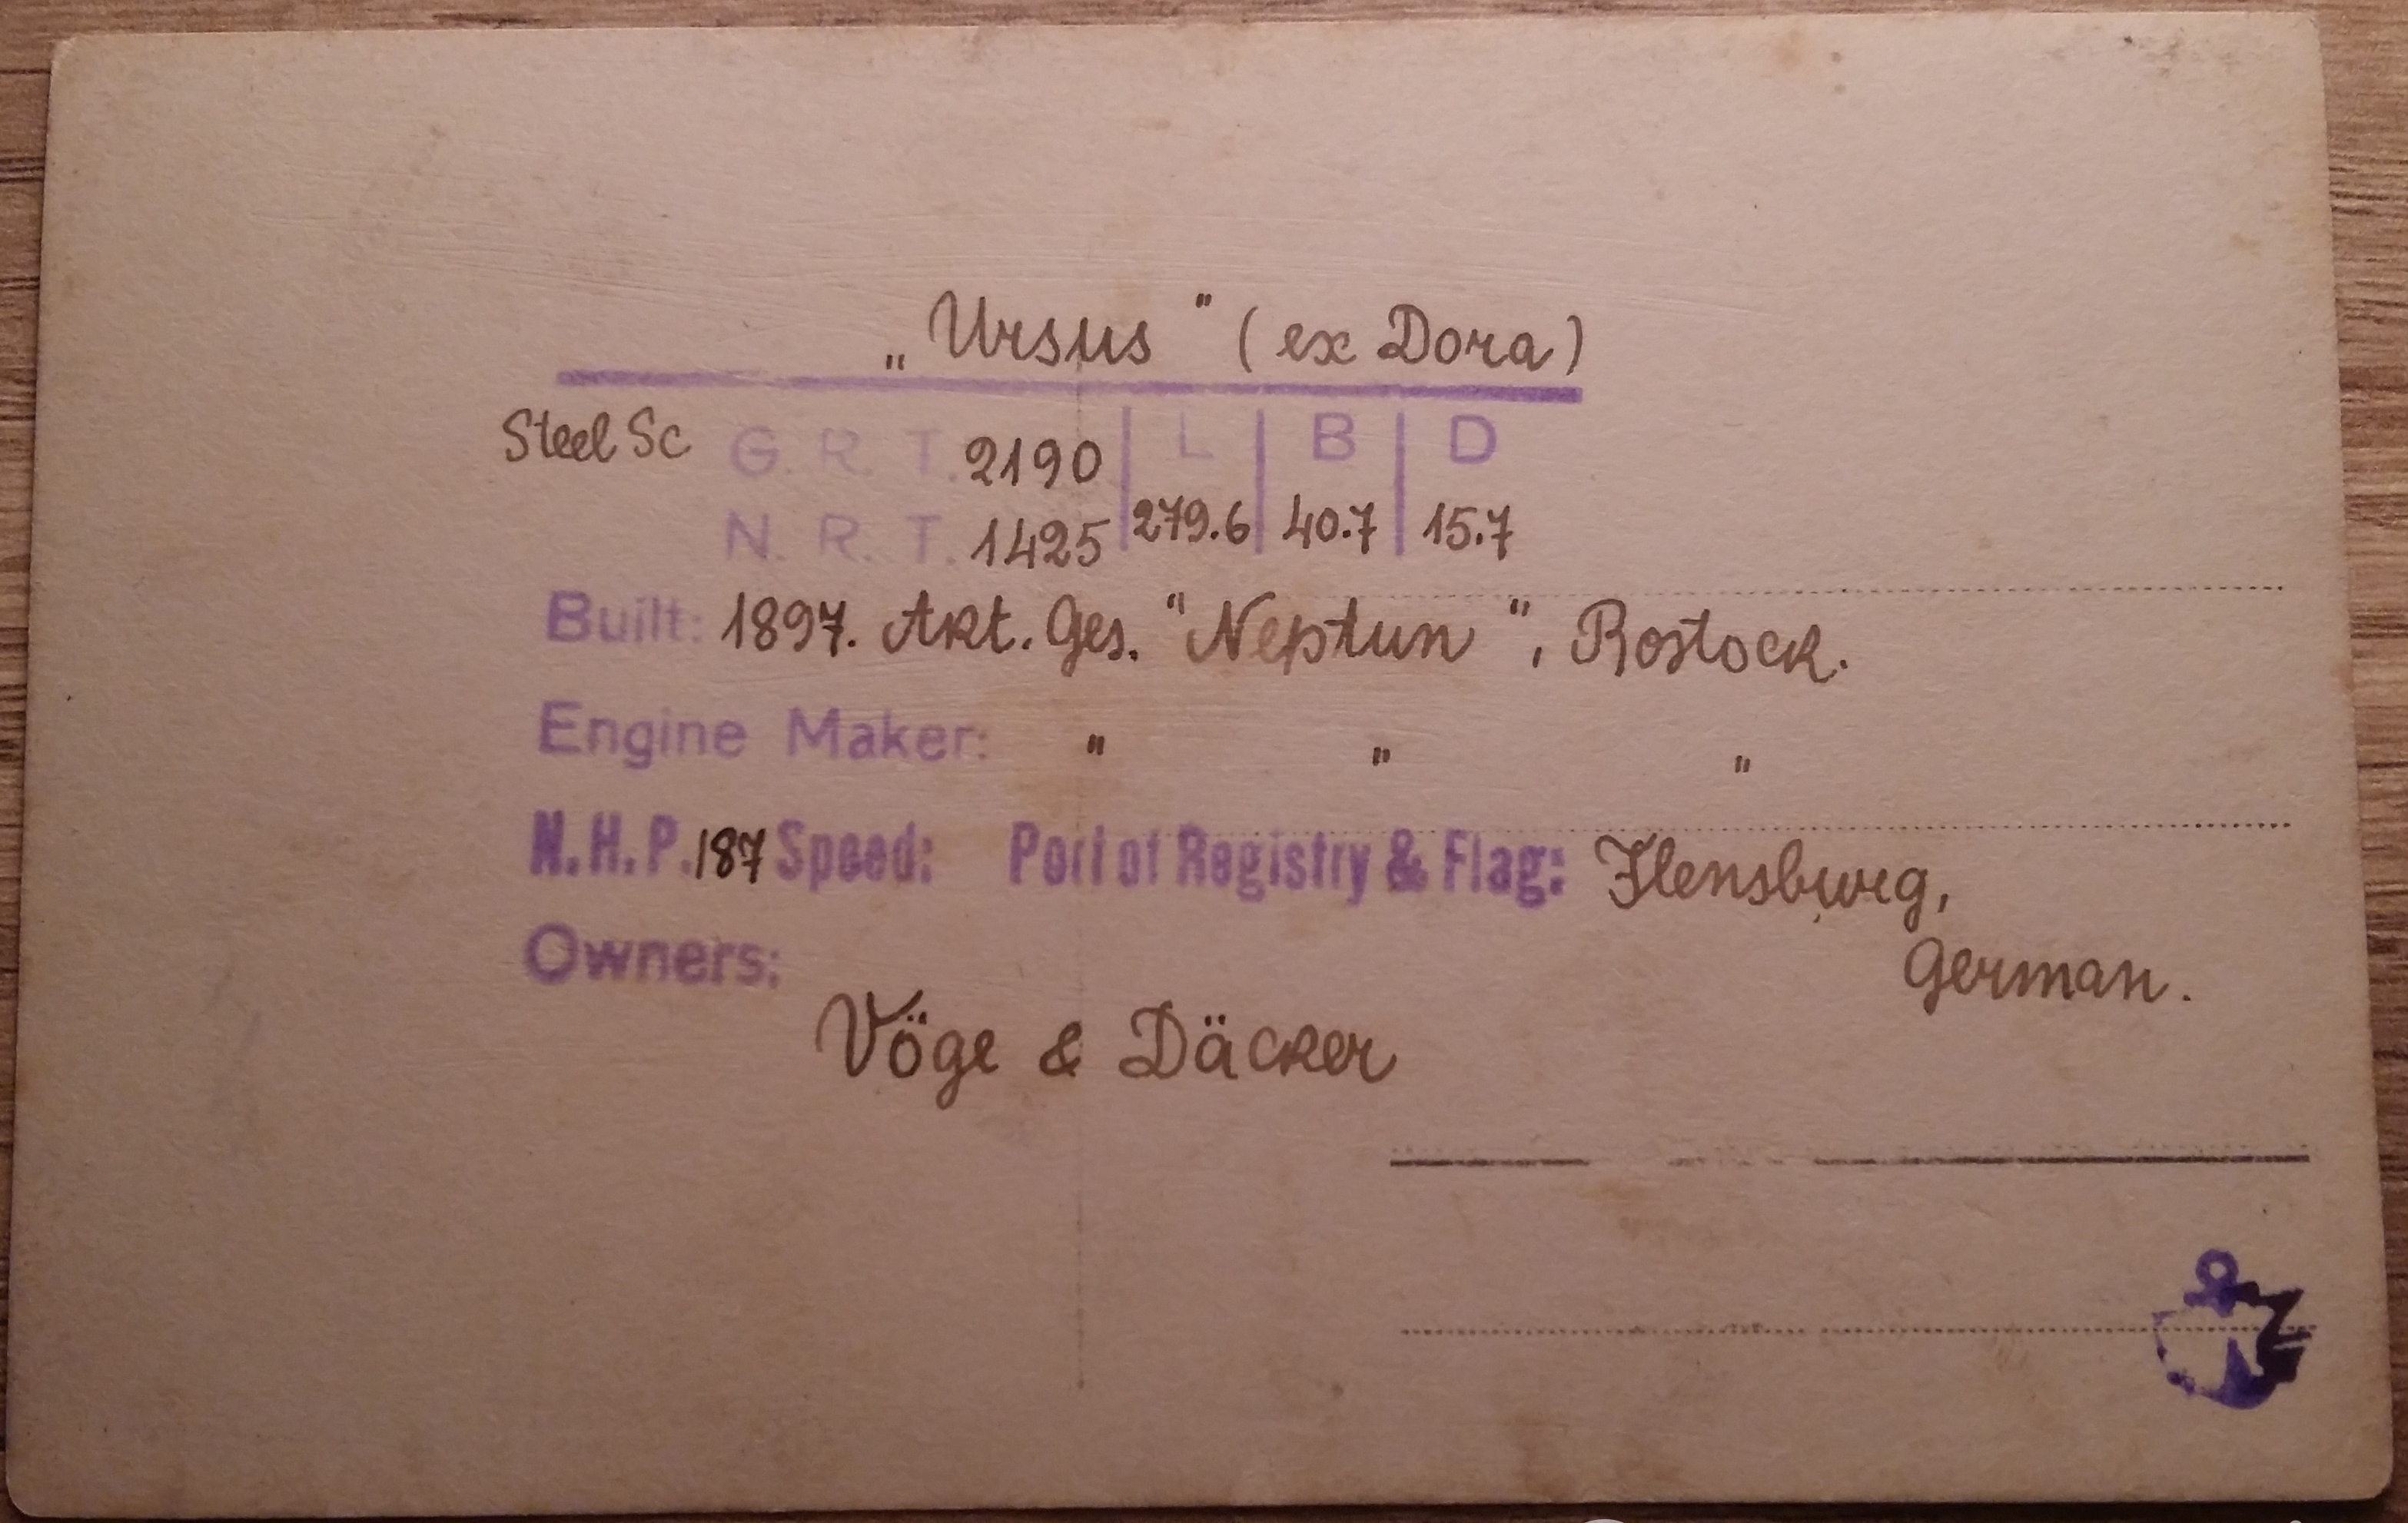 „Ursus" (ex Dora)
Steel Sc G. R. T. 2190 L B D
N. R. T. 1425 279.6 40.7 15.7
Built: 1897. Akt. Ges. "Neptun", Rostock.
Engine Maker: " " "
N.H.P. 187 Speed: Port of Registry & Flag: Flensburg,
German.
Owners:
Vöge & Däcker